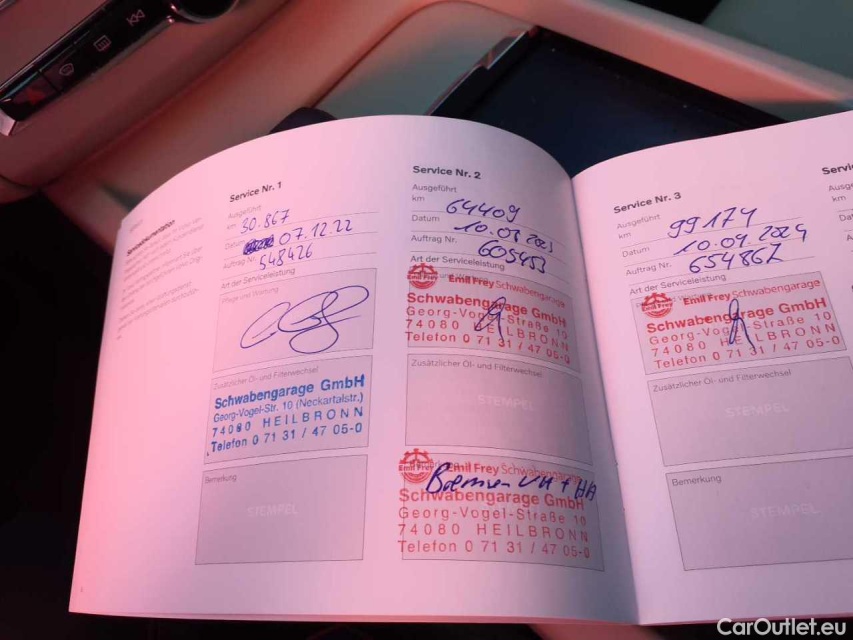 Servicedokumentation
Service Nr. 1
Ausgeführt
km 30.867
Datum 07.12.22
Auftrag Nr. 548426
Art der Serviceleistung
Pflege und Wartung
Zusätzlicher Öl- und Filterwechsel
Schwabengarage GmbH
Georg-Vogel-Str. 10 (Neckartalstr.)
74080 HEILBRONN
Telefon 0 71 31 / 47 05-0
Bemerkung
STEMPEL
Service Nr. 2
Ausgeführt
km 64409
Datum
Auftrag Nr. 605453
Art der Serviceleistung
Emil Frey Schwabengarage
Schwabengarage GmbH
Georg-Vogel-Straße 10
74080 HEILBRONN
Telefon 0 71 31 / 47 05-0
Zusätzlicher Öl- und Filterwechsel
STEMPEL
Emil Frey Schwabengarage
Bremsen VA + HA
Schwabengarage GmbH
Georg-Vogel-Straße 10
74080 HEILBRONN
Telefon 0 71 31 / 47 05-0
Service Nr. 3
Ausgeführt
km 99174
Datum 10.09.2024
Auftrag Nr. 654862
Art der Serviceleistung
Emil Frey Schwabengarage
Schwabengarage GmbH
Georg-Vogel-Straße 10
74080 HEILBRONN
Telefon 0 71 31 / 47 05-0
Zusätzlicher Öl- und Filterwechsel
STEMPEL
Bemerkung
STEMPEL
CarOutlet.eu